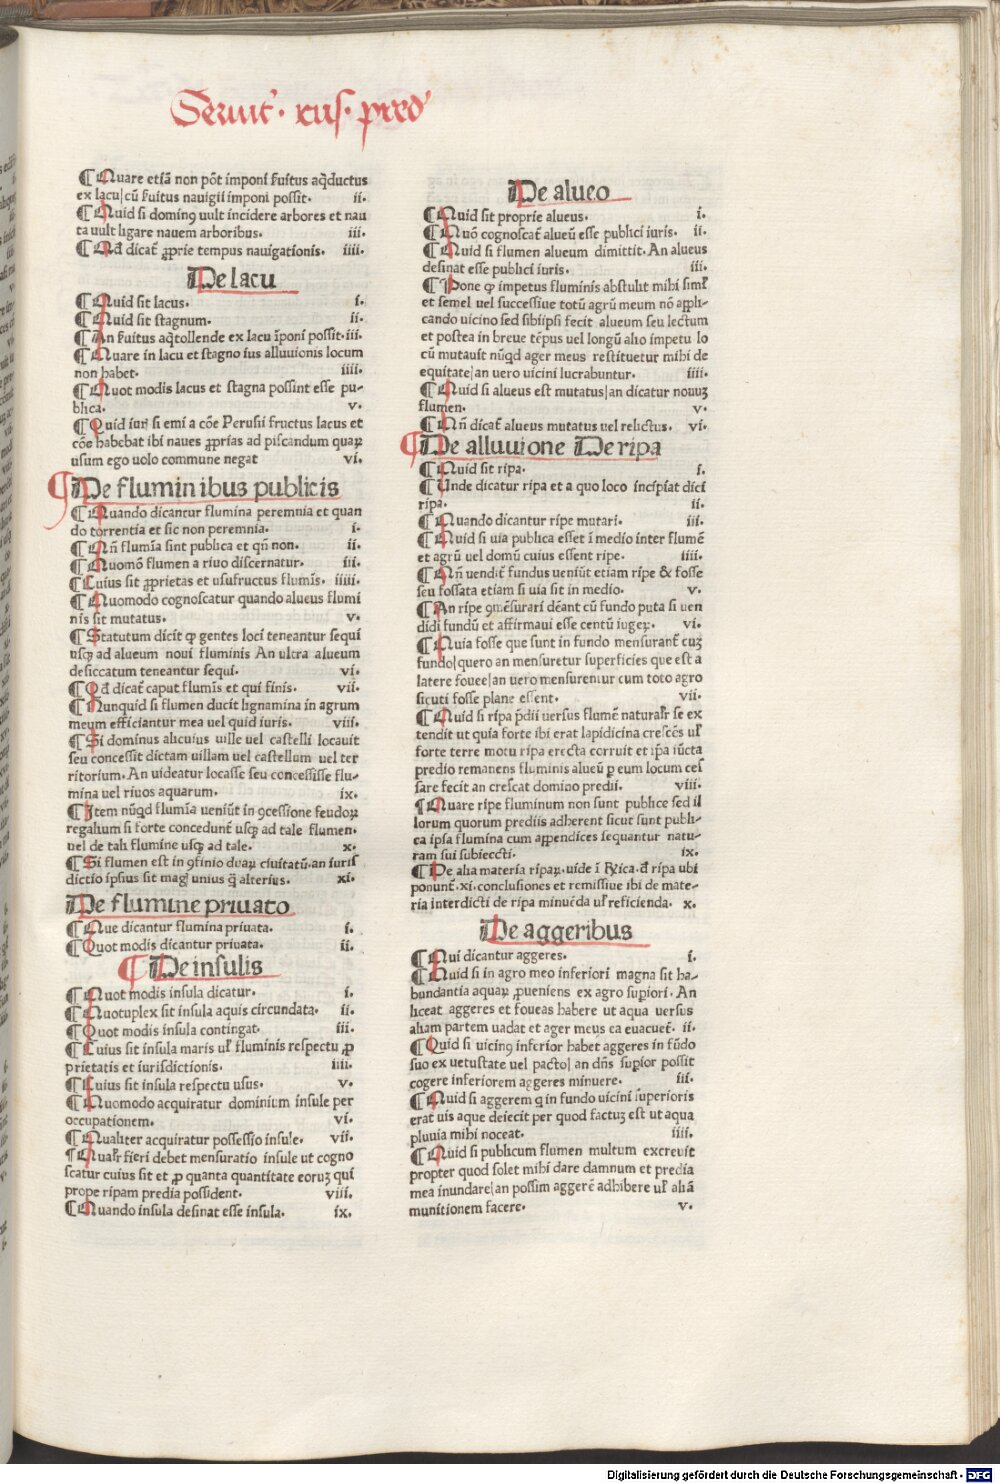 Seruit̄. rus. pred̄
¶ Quare etiā non pōt imponi s̄uitus aq̄ductus
ex lacu|cū s̄uitus nauigii imponi possit. ii.
¶ Quid si dominꝰ uult incidere arbores et nau
ta uult ligare nauem arboribus. iii.
¶ Qd̄ dicat̄ ꝓprie tempus nauigationis. iiii.
De lacu
¶ Quid sit lacus. i.
¶ Quid sit stagnum. ii.
¶ An s̄uitus aq̄tollende ex lacu īponi possit. iii.
¶ Quare in lacu et stagno ius alluuionis locum
non habet. iiii.
¶ Quot modis lacus et stagna possint esse pu-
blica. v.
¶ Quid iur̄ si emi a cōe Perusii fructus lacus et
cōe habebat ibi naues ꝓprias ad piscandum quaꝝ
usum ego uolo commune negat vi.
¶ De fluminibus publicis
¶ Quando dicantur flumina peremnia et quan
do torrentia et sic non peremnia. i.
¶ An̄ flumīa sint publica et qn̄ non. ii.
¶ Quomō flumen a riuo discernatur. iii.
¶ Cuius sit ꝓprietas et usufructus flumīs. iiii.
¶ Quomodo cognoscatur quando alueus flumi
nis sit mutatus. v.
¶ Statutum dicit ꝙ gentes loci teneantur sequi
usqꝫ ad alueum noui fluminis An ultra alueum
desiccatum teneantur sequi. vi.
¶ Qd̄ dicat̄ caput flumīs et qui finis. vii.
¶ Nunquid si flumen ducit lignamina in agrum
meum efficiantur mea uel quid iuris. viii.
¶ Si dominus alicuius uille uel castelli locauit
seu concessit dictam uillam uel castellum uel ter
ritorium. An uideatur locasse seu concessisse flu-
mina uel riuos aquarum. ix.
¶ Item nūqd flumīa ueniūt in ꝯcessione feudoꝝ
regalium si forte concedunt̄ usqꝫ ad tale flumen.
uel de tali flumine usqꝫ ad tale. x.
¶ Si flumen est in ꝯfinio duaꝝ ciuitatū. an iuris
dictio ipsius sit mag̃ unius q̄ alterius. xi.
De flumine priuato
¶ Que dicantur flumina priuata. i.
¶ Quot modis dicantur priuata. ii.
¶ De insulis
¶ Quot modis insula dicatur. i.
¶ Quotuplex sit insula aquis circundata. ii.
¶ Quot modis insula contingat. iii.
¶ Cuius sit insula maris ul̄ fluminis respectu ꝓ
prietatis et iurisdictionis. iiii.
¶ Cuius sit insula respectu usus. v.
¶ Quomodo acquiratur dominium insule per
occupationem. vi.
¶ Qualiter acquiratur possessio insule. vii.
¶ Qualr̄ fieri debet mensuratio insule ut cogno
scatur cuius sit et ꝓ quanta quantitate eoruꝫ qui
prope ripam predia possident. viii.
¶ Quando insula desinat esse insula. ix.
De alueo
¶ Quid sit proprie alueus. i.
¶ Quō cognoscat̄ alueū esse publici iuris. ii.
¶ Quid si flumen alueum dimittit. An alueus
desinat esse publici iuris. iii.
¶ Pone ꝙ impetus fluminis abstulit mihi siml̄
et semel uel successiue totū agrū meum nō appli-
cando uicino sed sibiipsi fecit alueum seu lectum
et postea in breue tēpus uel longū alio impetu lo
cū mutauit nūqd ager meus restituetur mihi de
equitate|an uero uicini lucrabuntur. iiii.
¶ Quid si alueus est mutatus|an dicatur nouuꝫ
flumen. v.
¶ Qn̄ dicat̄ alueus mutatus uel relictus. vi.
¶ De alluuione De ripa
¶ Quid sit ripa. i.
¶ Unde dicatur ripa et a quo loco incipiat dici
ripa. ii.
¶ Quando dicantur ripe mutari. iii.
¶ Quid si uia publica esset ī medio inter flumē
et agrū uel domū cuius essent ripe. iiii.
¶ An̄ uendit̄ fundus ueniūt etiam ripe & fosse
seu fossata etiam si uia sit in medio. v.
¶ An ripe ꝯmēsurari dēant cū fundo puta si uen
didi fundū et affirmaui esse centū iugeꝝ. vi.
¶ Quia fosse que sunt in fundo mensurant̄ cuꝫ
fundo|quero an mensuretur superficies que est a
latere fouee|an uero mensurentur cum toto agro
sicuti fosse plane essent. vii.
¶ Quid si ripa p̄dii uersus flumē naturalr̄ se ex
tendit ut quia forte ibi erat lapidicina crescēs ul̄
forte terre motu ripa erecta corruit et ip̄a iūcta
predio remanens fluminis alueū ꝑ eum locum ces
sare fecit an crescat domino predii. viii.
¶ Quare ripe fluminum non sunt publice sed il
lorum quorum prediis adherent sicut sunt publi-
ca ipsa flumina cum appendices sequantur natu-
ram sui subiecti. ix.
¶ De alia materia ripaꝝ. uide ī Rͤica. d̄ ripa ubi
ponunt̄. xi. conclusiones et remissiue ibi de mate-
ria interdicti de ripa minuēda ul̄ reficienda. x.
De aggeribus
¶ Qui dicantur aggeres. i.
¶ Quid si in agro meo inferiori magna sit ha-
bundantia aquaꝝ ꝓueniens ex agro suꝑiori. An
liceat aggeres et foueas habere ut aqua uersus
aliam partem uadat et ager meus ea euacuet̄. ii.
¶ Quid si uicinꝰ inferior habet aggeres in fūdo
suo ex uetustate uel pacto| an dn̄s suꝑior possit
cogere inferiorem aggeres minuere. iii.
¶ Quid si aggerem q in fundo uicini superioris
erat uis aque deiecit per quod factuꝫ est ut aqua
pluuia mihi noceat. iiii.
¶ Quid si publicum flumen multum excreuit
propter quod solet mihi dare damnum et predia
mea inundare|an possim aggerē adhibere ul̄ aliā
munitionem facere. v.
Digitalisierung gefördert durch die Deutsche Forschungsgemeinschaft - DFG